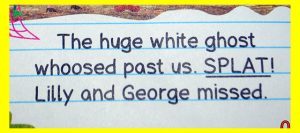 The huge white ghost
whoosed past us. SPLAT!
Lilly and George missed.